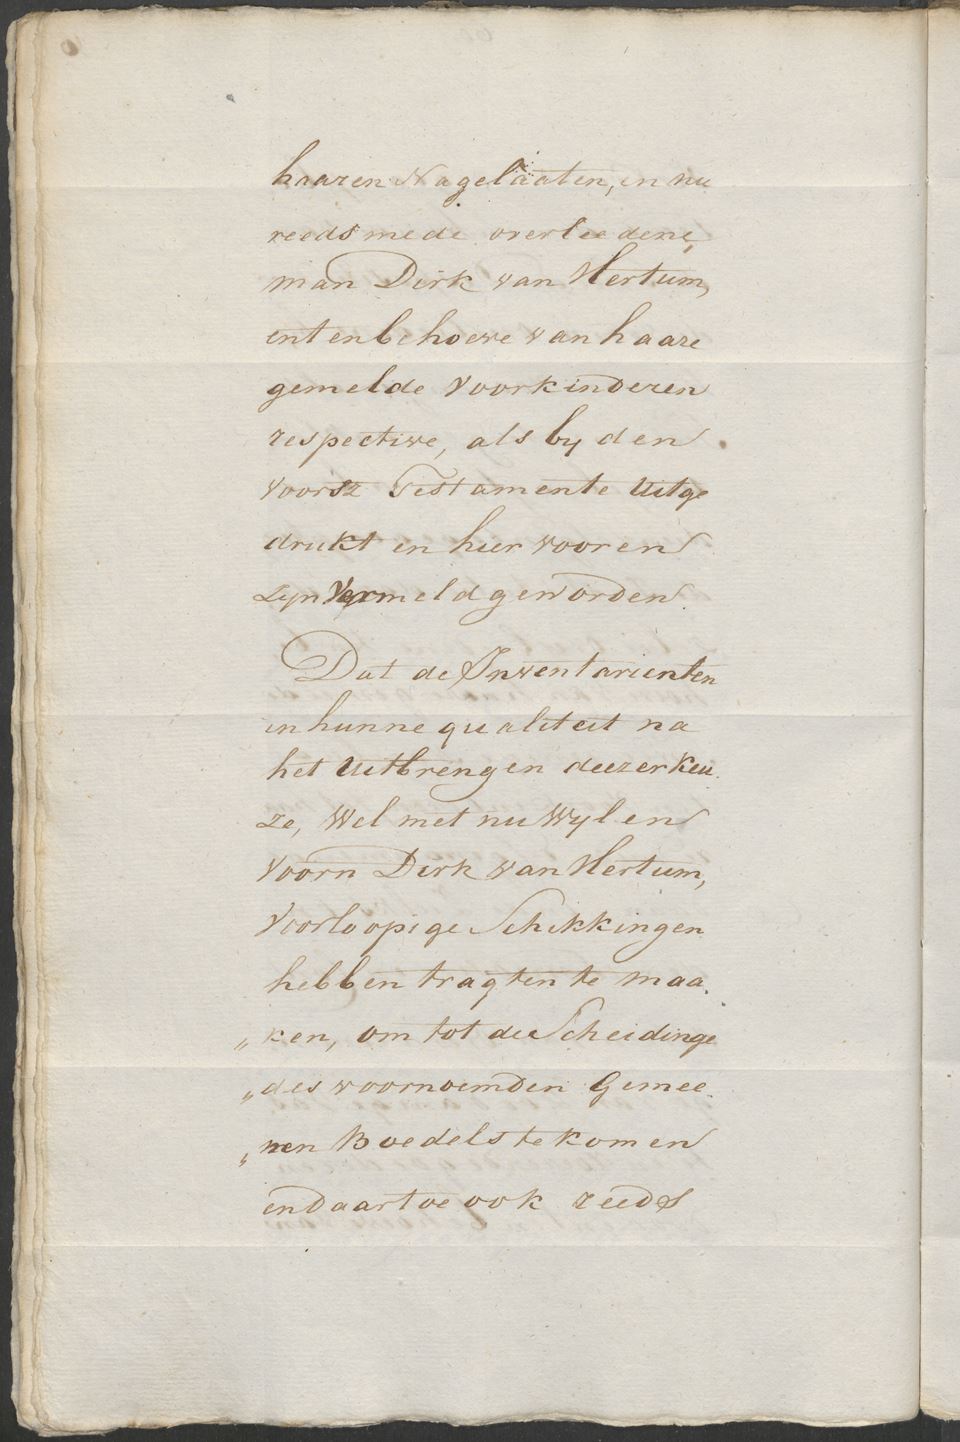 haaren Nagelaaten, en nu
reeds mede overleedene,
man Dirk van Hertum,
en ten behoeve van haare
gemelde voorkinderen
respective, als by den
voorsz Testamente uitge
drukt en hier vooren
zyn vermeld geworden.
Dat de Inventarienten
in hunne qualiteit na
het uitbrengen deezer keu
ze, wel met nu wylen
voorn Dirk van Hertum,
voorloopige Schikkingen
hebben tragten te maa
„ken, om tot de Scheidinge
„des voornoemden Gemee
„nen Boedels te komen
en daartoe ook reeds